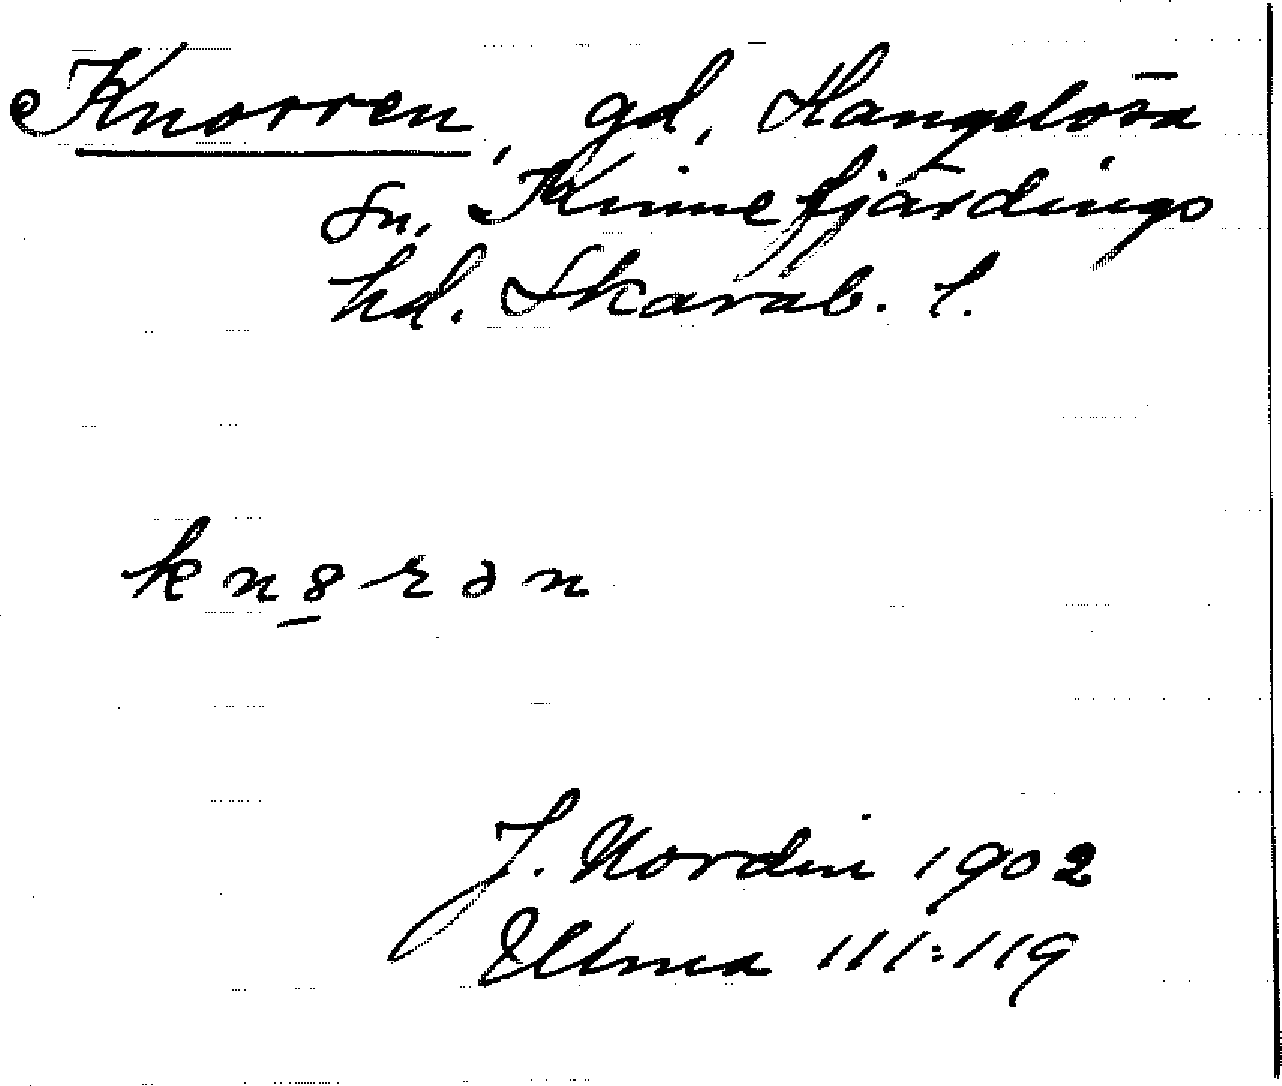 Knorren, gd, Hangelösa
sn. Kinnefjärdings
hd. Skarab. l.
k n 8 r ə n
J. Nordin 1902
Ulma 111:119